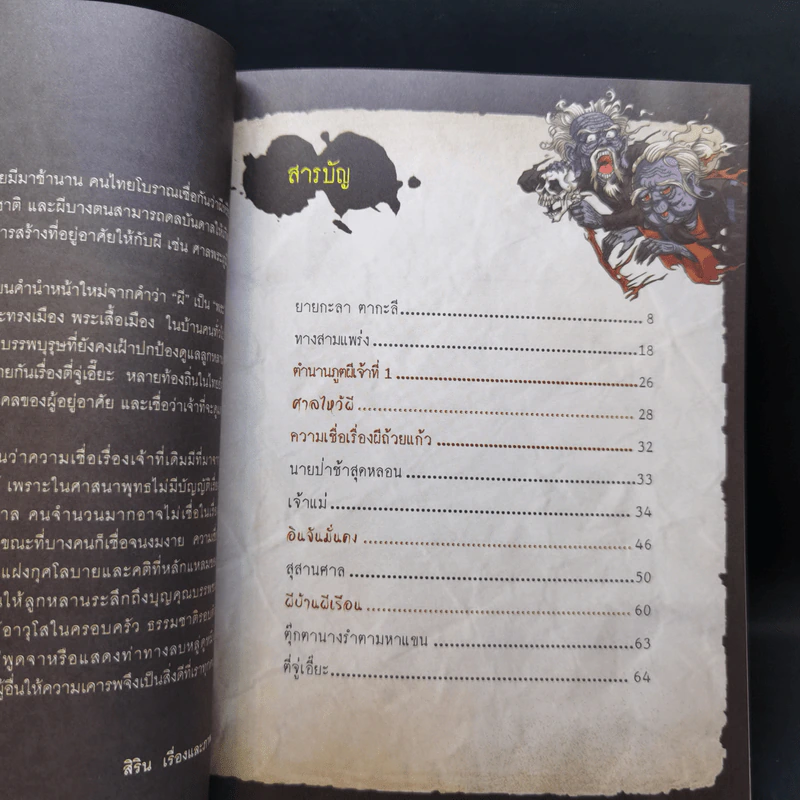 ยมีมาช้านาน คนไทยโบราณเชื่อกันว่า
ชาติ และผีบางตนสามารถดลบันดาล
การสร้างที่อยู่อาศัยให้กับผี เช่น
ยนคำนำหน้าใหม่จากคำว่า "ผี" เป็น
ะทรงเมือง พระเสื้อเมือง ในบ้านคน
บรรพบุรุษที่ยังคงเฝ้าปกป้องดูแลลูกหลาน
ายกันเรื่องตี่จู่เอี๊ยะ หลายท้องถิ่นในไทย
คลของผู้อยู่อาศัย และเชื่อว่าเจ้าที่จะ
นว่าความเชื่อเรื่องเจ้าที่เดิมมีที่มาจาก
เพราะในศาสนาพุทธไม่มีบัญญัติ
าล คนจำนวนมากอาจไม่เชื่อใน
ขณะที่บางคนก็เชื่อจนงมงาย
แฝงกุศโลบายและคติที่หลักแหลม
นให้ลูกหลานระลึกถึงบุญคุณบรรพ
อาวุโสในครอบครัว ธรรมชาติรอบ
พูดจาหรือแสดงท่าทางลบหลู่
ผู้อื่นให้ความเคารพจึงเป็นสิ่งดีที่เรา
สิริน เรื่องและภาพ
สารบัญ
ยายกะลา ตากะลี 8
ทางสามแพร่ง 18
ตำนานภูตผีเจ้าที่ 1 26
ศาลไหว้ผี 28
ความเชื่อเรื่องผีถ้วยแก้ว 32
นายป่าช้าสุดหลอน 33
เจ้าแม่ 34
อินจันมั่นคง 46
สุสานศาล 50
ผีบ้านผีเรือน 60
ตุ๊กตานางรำตามหาแขน 63
ตี่จู่เอี๊ยะ 64